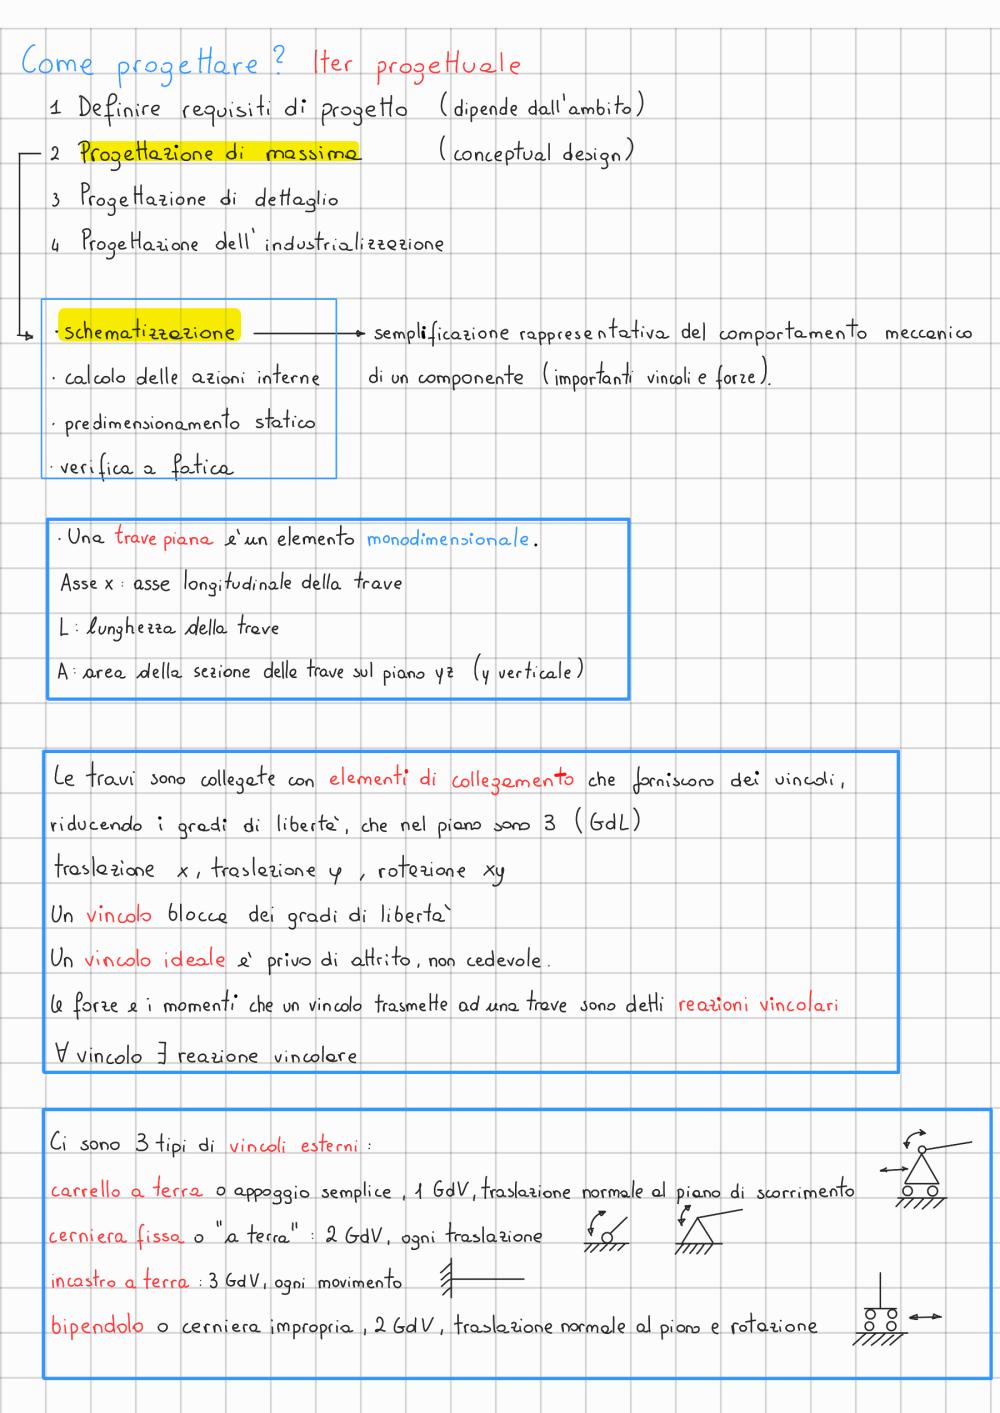 Come progettare? Iter progettuale
1 Definire requisiti di progetto (dipende dall'ambito)
2 Progettazione di massima (conceptual design)
3 Progettazione di dettaglio
4 Progettazione dell'industrializzazione
· schematizzazione → semplificazione rappresentativa del comportamento meccanico
· calcolo delle azioni interne di un componente (importanti vincoli e forze).
· predimensionamento statico
· verifica a fatica
· Una trave piana è un elemento monodimensionale.
Asse x : asse longitudinale della trave
L : lunghezza della trave
A : area della sezione della trave sul piano yz (y verticale)
Le travi sono collegate con elementi di collegamento che forniscono dei vincoli,
riducendo i gradi di libertà, che nel piano sono 3 (GdL)
traslazione x, traslazione y, rotazione xy
Un vincolo blocca dei gradi di libertà
Un vincolo ideale è privo di attrito, non cedevole.
le forze e i momenti che un vincolo trasmette ad una trave sono detti reazioni vincolari
∀ vincolo ∃ reazione vincolare
Ci sono 3 tipi di vincoli esterni :
carrello a terra o appoggio semplice, 1 GdV, traslazione normale al piano di scorrimento
cerniera fissa o "a terra" : 2 GdV, ogni traslazione
incastro a terra : 3 GdV, ogni movimento
bipendolo o cerniera impropria, 2 GdV, traslazione normale al piano e rotazione